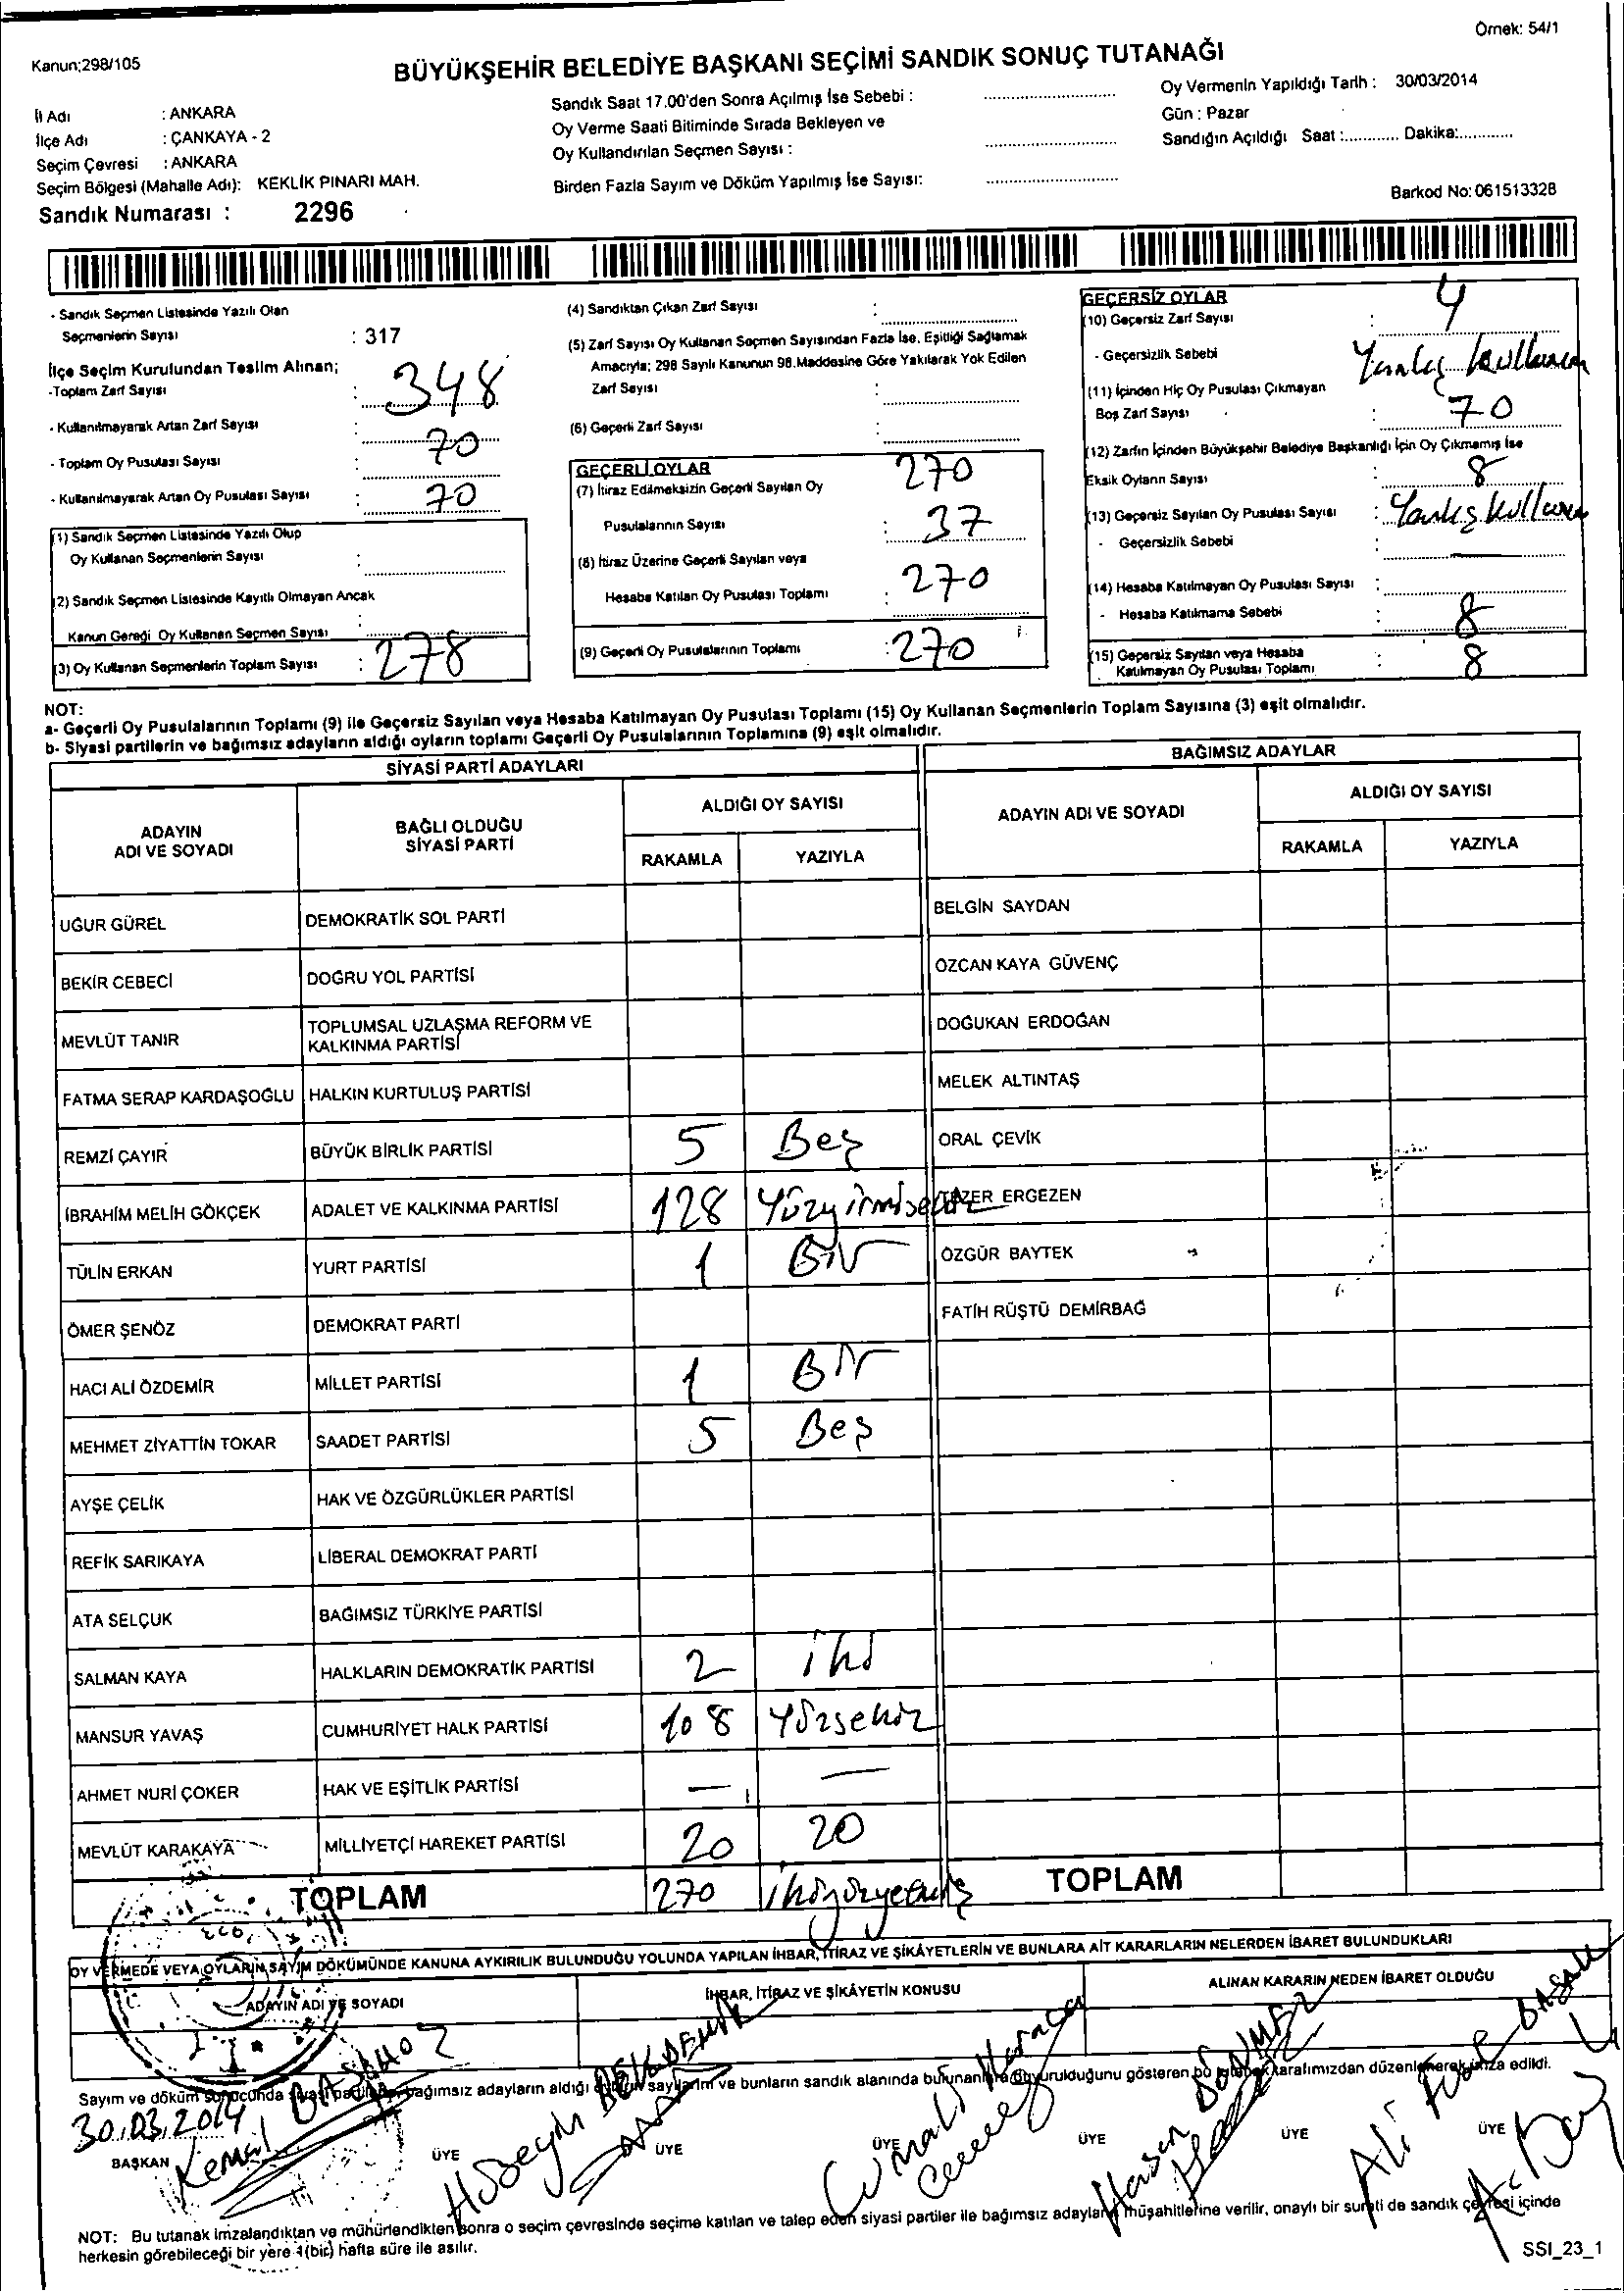 Örnek: 54/1
Kanun;298/105
BÜYÜKŞEHİR BELEDİYE BAŞKANI SEÇİMİ SANDIK SONUÇ TUTANAĞI
İl Adı : ANKARA
İlçe Adı : ÇANKAYA - 2
Seçim Çevresi : ANKARA
Seçim Bölgesi (Mahalle Adı): KEKLİK PINARI MAH.
Sandık Numarası : 2296
Sandık Saat 17.00'den Sonra Açılmış İse Sebebi :
Oy Verme Saati Bitiminde Sırada Bekleyen ve
Oy Kullandırılan Seçmen Sayısı :
Birden Fazla Sayım ve Döküm Yapılmış İse Sayısı:
Oy Vermenin Yapıldığı Tarih : 30/03/2014
Gün : Pazar
Sandığın Açıldığı Saat :............ Dakika:............
Barkod No: 061513328
- Sandık Seçmen Listesinde Yazılı Olan
Seçmenlerin Sayısı : 317
İlçe Seçim Kurulundan Teslim Alınan;
-Toplam Zarf Sayısı : 348
- Kullanılmayarak Artan Zarf Sayısı : 70
- Toplam Oy Pusulası Sayısı :
- Kullanılmayarak Artan Oy Pusulası Sayısı : 70
(1) Sandık Seçmen Listesinde Yazılı Olup
Oy Kullanan Seçmenlerin Sayısı :
(2) Sandık Seçmen Listesinde Kayıtlı Olmayan Ancak
Kanun Gereği Oy Kullanan Seçmen Sayısı :
(3) Oy Kullanan Seçmenlerin Toplam Sayısı : 278
(4) Sandıktan Çıkan Zarf Sayısı :
(5) Zarf Sayısı Oy Kullanan Seçmen Sayısından Fazla İse, Eşitliği Sağlamak
Amacıyla; 298 Sayılı Kanunun 98.Maddesine Göre Yakılarak Yok Edilen
Zarf Sayısı :
(6) Geçerli Zarf Sayısı :
GEÇERLİ OYLAR 270
(7) İtiraz Edilmeksizin Geçerli Sayılan Oy
Pusulalarının Sayısı : 37
(8) İtiraz Üzerine Geçerli Sayılan veya
Hesaba Katılan Oy Pusulası Toplamı : 270
(9) Geçerli Oy Pusulalarının Toplamı : 270
GEÇERSİZ OYLAR
(10) Geçersiz Zarf Sayısı : 4
- Geçersizlik Sebebi Yanlış kullanım
(11) İçinden Hiç Oy Pusulası Çıkmayan
Boş Zarf Sayısı : 70
(12) Zarfın İçinden Büyükşehir Belediye Başkanlığı İçin Oy Çıkmamış İse
Eksik Oyların Sayısı : 8
(13) Geçersiz Sayılan Oy Pusulası Sayısı : Yanlış kullanım
- Geçersizlik Sebebi : —
(14) Hesaba Katılmayan Oy Pusulası Sayısı :
- Hesaba Katılmama Sebebi : 8
(15) Geçersiz Sayılan veya Hesaba
Katılmayan Oy Pusulası Toplamı : 8
NOT:
a- Geçerli Oy Pusulalarının Toplamı (9) ile Geçersiz Sayılan veya Hesaba Katılmayan Oy Pusulası Toplamı (15) Oy Kullanan Seçmenlerin Toplam Sayısına (3) eşit olmalıdır.
b- Siyasi partilerin ve bağımsız adayların aldığı oyların toplamı Geçerli Oy Pusulalarının Toplamına (9) eşit olmalıdır.
SİYASİ PARTİ ADAYLARI
BAĞIMSIZ ADAYLAR
ADAYIN
ADI VE SOYADI
BAĞLI OLDUĞU
SİYASİ PARTİ
ALDIĞI OY SAYISI
RAKAMLA YAZIYLA
ADAYIN ADI VE SOYADI
ALDIĞI OY SAYISI
RAKAMLA YAZIYLA
UĞUR GÜREL DEMOKRATİK SOL PARTİ BELGİN SAYDAN
BEKİR CEBECİ DOĞRU YOL PARTİSİ ÖZCAN KAYA GÜVENÇ
MEVLÜT TANIR TOPLUMSAL UZLAŞMA REFORM VE
KALKINMA PARTİSİ DOĞUKAN ERDOĞAN
FATMA SERAP KARDAŞOĞLU HALKIN KURTULUŞ PARTİSİ MELEK ALTINTAŞ
REMZİ ÇAYIR BÜYÜK BİRLİK PARTİSİ 5 Beş ORAL ÇEVİK
İBRAHİM MELİH GÖKÇEK ADALET VE KALKINMA PARTİSİ 128 Yüzyirmisekiz ERGEZEN
TÜLİN ERKAN YURT PARTİSİ 1 Bir ÖZGÜR BAYTEK
ÖMER ŞENÖZ DEMOKRAT PARTİ FATİH RÜŞTÜ DEMİRBAĞ
HACI ALİ ÖZDEMİR MİLLET PARTİSİ 1 Bir
MEHMET ZİYATTİN TOKAR SAADET PARTİSİ 5 Beş
AYŞE ÇELİK HAK VE ÖZGÜRLÜKLER PARTİSİ
REFİK SARIKAYA LİBERAL DEMOKRAT PARTİ
ATA SELÇUK BAĞIMSIZ TÜRKİYE PARTİSİ
SALMAN KAYA HALKLARIN DEMOKRATİK PARTİSİ 2 iki
MANSUR YAVAŞ CUMHURİYET HALK PARTİSİ 108 Yüzsekiz
AHMET NURİ ÇOKER HAK VE EŞİTLİK PARTİSİ — —
MEVLÜT KARAKAYA MİLLİYETÇİ HAREKET PARTİSİ 20 20
TOPLAM 270 ikiyüzyetmiş TOPLAM
OY VERMEDE VEYA OYLARIN SAYIM DÖKÜMÜNDE KANUNA AYKIRILIK BULUNDUĞU YOLUNDA YAPILAN İHBAR, İTİRAZ VE ŞİKÂYETLERİN VE BUNLARA AİT KARARLARIN NELERDEN İBARET BULUNDUKLARI
ADAYIN ADI VE SOYADI İHBAR, İTİRAZ VE ŞİKÂYETİN KONUSU ALINAN KARARIN NEDEN İBARET OLDUĞU
Sayım ve döküm sonucunda siyasi partilerin, bağımsız adayların aldığı oyların sayılarını ve bunların sandık alanında bulunanlara duyurulduğunu gösteren bu tutanak tarafımızdan düzenlenerek imza edildi.
30.03.2014
BAŞKAN ÜYE ÜYE ÜYE ÜYE ÜYE ÜYE
Kemal Hüseyin Cumali Karaca Hasan Ali
NOT: Bu tutanak imzalandıktan ve mühürlendikten sonra o seçim çevresinde seçime katılan ve talep eden siyasi partiler ile bağımsız adayların müşahitlerine verilir, onaylı bir sureti de sandık çevresi içinde
herkesin görebileceği bir yere 1(bir) hafta süre ile asılır.
SSI_23_1